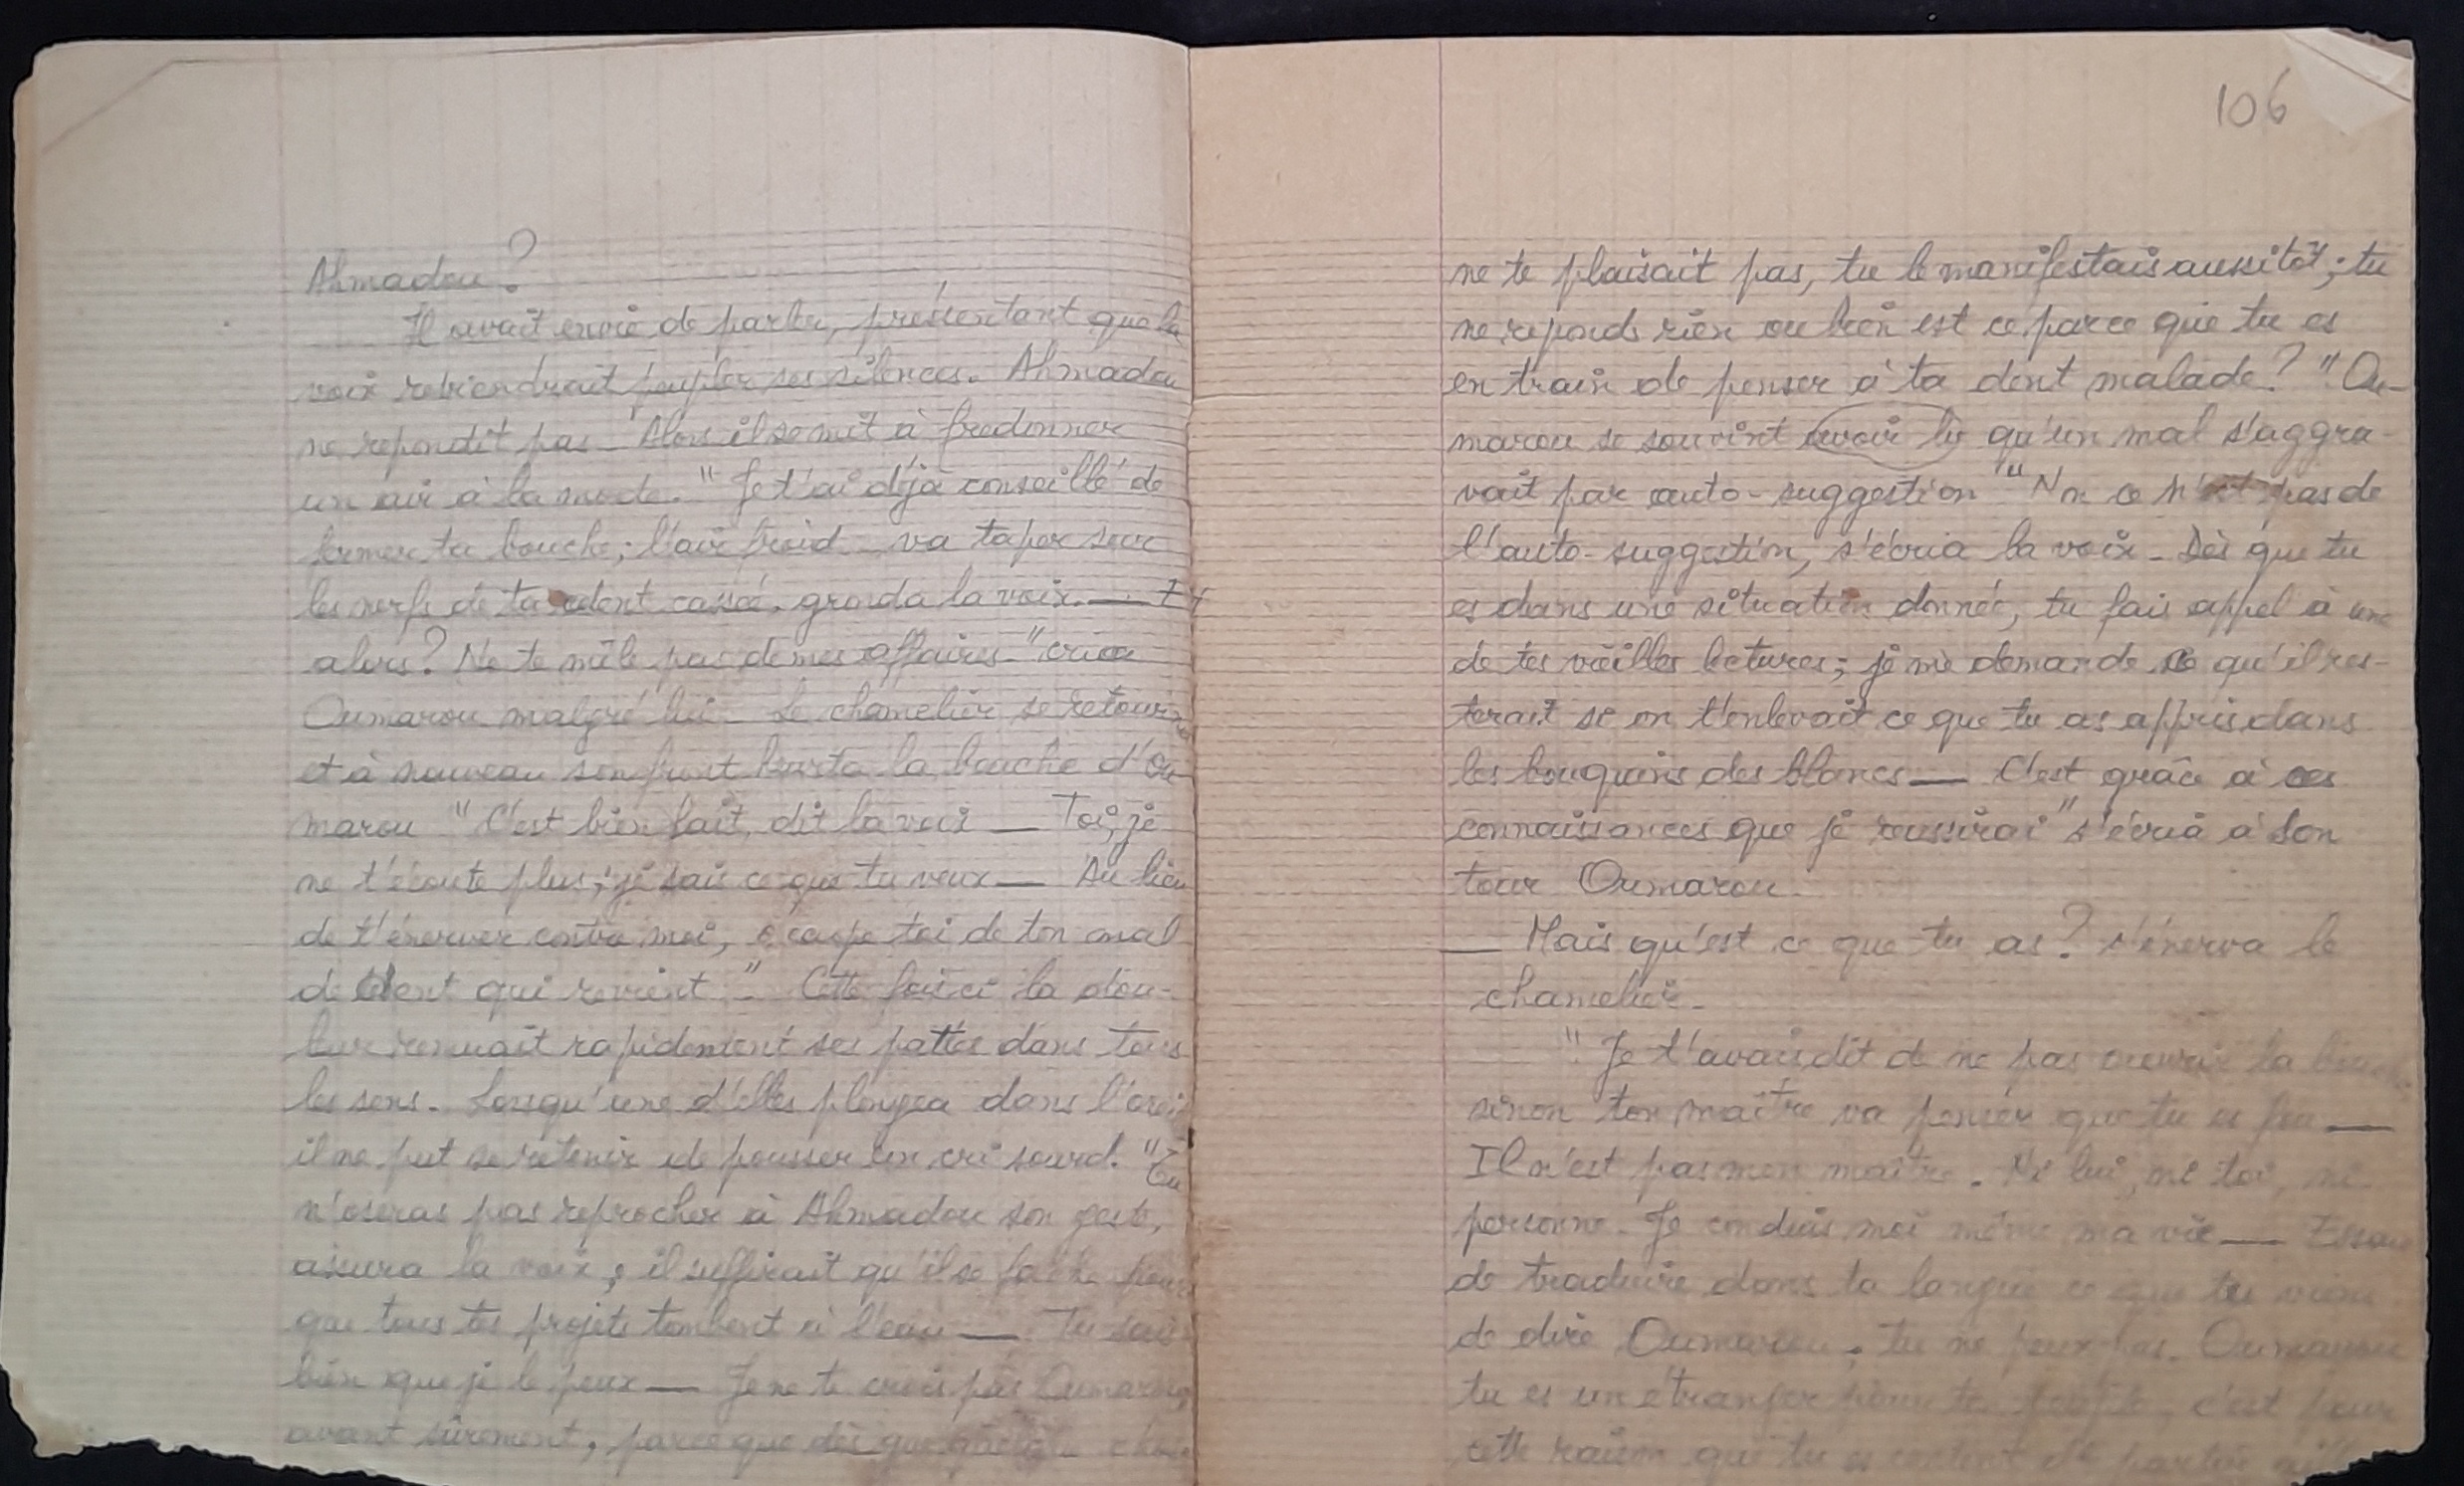 Ahmadou ?
Il avait envie de parler, pressentant que la
voix reviendrait peupler ses silences. Ahmadou
ne repondit pas. Alors il se mit à fredonner
un air à la mode. " Je t'ai déjà conseillé de
fermer ta bouche ; l'air froid va taper sur
les nerfs de ta dent cassée, gronda la voix. — Et
alors ? Ne te mêle pas de mes affaires " cria
Oumarou malgré lui. Le chamelier se retourna
et à nouveau son front heurta la bouche d'Ou-
marou " C'est bien fait, dit la voix — Toi, je
ne t'écoute plus ; je sais ce que tu veux — Au lieu
de t'énerver contre moi, occupe toi de ton mal
de dent qui revient ". Cette fois ci la dou-
leur remuait rapidement ses pattes dans tous
les sens. Lorsqu'une d'elles plongea dans l'oreil
il ne put se retenir de pousser un cri sourd. " Tu
n'oseras pas reprocher à Ahmadou son geste,
assura la voix ; il suffirait qu'il se fache pour
que tous tes projets tombent à l'eau — Tu sais
bien que je le peux — Je ne te crois pas Oumarou,
avant sûrement, parce que dès que quelque chose
106
ne te plaisait pas, tu le manifestais aussitôt ; tu
ne reponds rien ou bien est ce parce que tu es
en train de penser à ta dent malade ? " Ou-
marou se souvint avoir lu qu'un mal s'aggra-
vait par auto-suggestion " Non ce n'est pas de
l'auto-suggestion, s'écria la voix. Dès que tu
es dans une situation donnée, tu fais appel à une
de tes vieilles lectures ; je me demande ce qu'il res-
terait si on t'enlevait ce que tu as appris dans
les bouquins des blancs — C'est grâce à ces
connaissances que je reussirai " s'écria à son
tour Oumarou.
— Mais qu'est ce que tu as ? s'énerva le
chamelier.
" Je t'avais dit de ne pas ouvrir la bouche
sinon ton maître va penser que tu es fou —
Il n'est pas mon maître. Ni lui, ni toi, ni
personne. Je conduis moi même ma vie — Essaie
de traduire dans ta langue ce que tu viens
de dire Oumarou ; tu ne peux pas. Oumarou
tu es un étranger pour ton peuple, c'est pour
cette raison que tu es content de parler